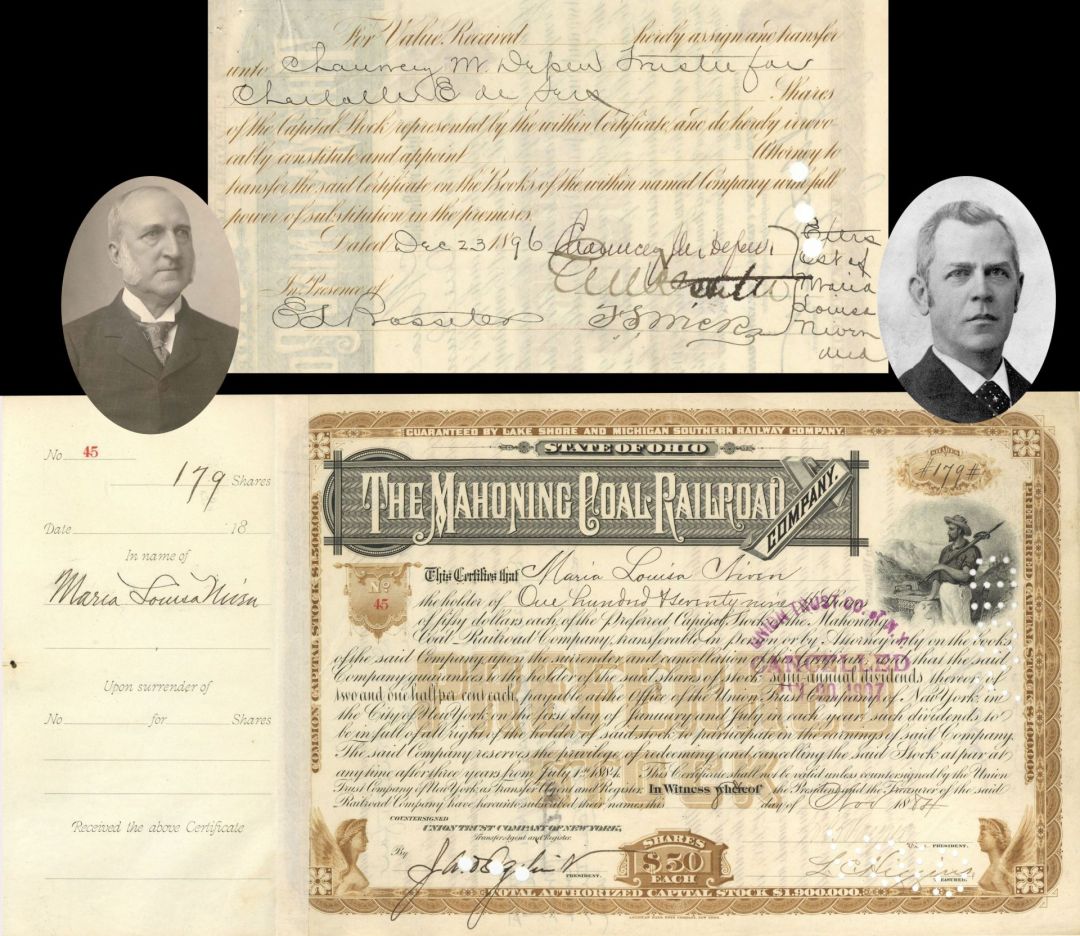 For Value Received hereby assign and transfer
unto Chauncey M. Depew Trustee for
Charlotte E de
Shares
of the Capital Stock represented by the within Certificate, and do hereby irrevo-
cably constitute and appoint Attorney to
transfer the said Certificate on the Books of the within named Company with full
power of substitution in the premises.
Dated Dec 23 1896 Chauncey M Depew
In Presence of
E L Rossiter
Exters
Est of
Maria
Louisa
Niven
decd
No 45
179 Shares
Date 18
In name of
Maria Louisa Niven
Upon surrender of
No for Shares
Received the above Certificate
GUARANTEED BY LAKE SHORE AND MICHIGAN SOUTHERN RAILWAY COMPANY.
STATE OF OHIO
SHARES
#179#
THE MAHONING COAL RAILROAD
COMPANY.
COMMON CAPITAL STOCK $1,500,000.
PREFERRED CAPITAL STOCK $400,000.
No
45
This Certifies that Maria Louisa Niven
the holder of One hundred & seventy nine shares
of fifty dollars each of the Preferred Capital Stock of the Mahoning
Coal Railroad Company, transferable in person or by Attorney only on the Books
of the said Company upon the surrender and cancellation of this Certificate, and that the said
Company guarantees to the holder of the said share of stock semi-annual dividends thereon of
two and one half per cent each, payable at the Office of the Union Trust Company of New York, in
the City of New York on the first day of January and July in each year, such dividends to
be in full of all right of the holder of said stock to participate in the earnings of said Company.
The said Company reserves the privilege of redeeming and cancelling the said Stock at par at
any time after three years from July 1st 1884. This Certificate shall not be valid unless countersigned by the Union
Trust Company of New York as Transfer Agent and Register. In Witness whereof the President and the Treasurer of the said
Railroad Company have hereunto subscribed their names the day of Nov 1884
PREFERRED
STOCK
UNION TRUST CO. of N.Y.
CANCELLED
COUNTERSIGNED
UNION TRUST COMPANY OF NEW YORK,
Transfer Agent and Register.
By
PRESIDENT.
SHARES
$50
EACH
PRESIDENT.
L C Higgins
TREASURER.
TOTAL AUTHORIZED CAPITAL STOCK $1,900,000.
AMERICAN BANK NOTE COMPANY, NEW YORK.